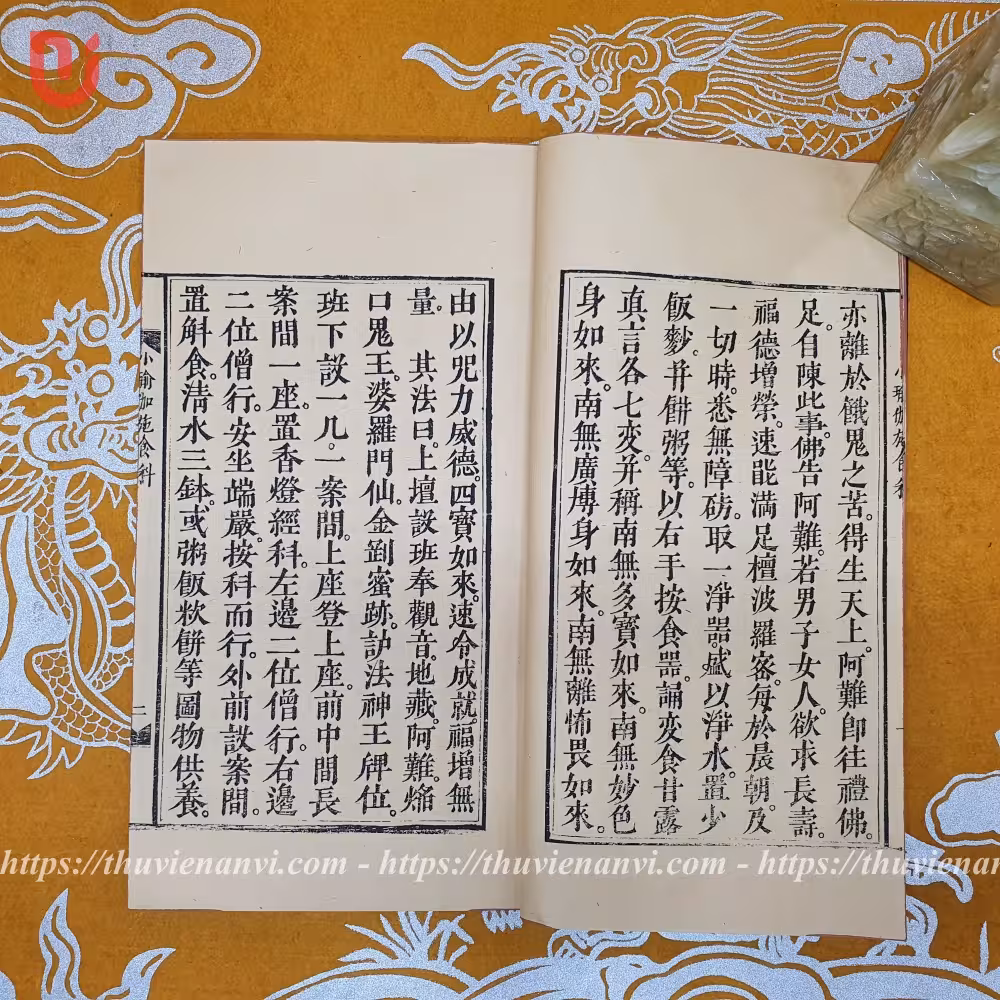 亦離於餓鬼之苦。得生天上。阿難卽往禮佛。
足。自陳此事。佛告阿難。若男子女人。欲求長壽。
福德增榮。速能滿足檀波羅密。每於晨朝。及
一切時。悉無障磅。取一淨器。盛以淨水。置少
飯麨。幷餅粥等。以右手按食器。誦変食甘露
真言各七変。幷稱南無多寶如來。南無妙色
身如來。南無廣博身如來。南無離怖畏如來。
由以咒力威德。四寶如來。速令成就。福增無
量。 其法曰。上壇設班奉觀音。地藏。阿難。焔
口鬼王。婆羅門仙。金剛蜜跡。訪法神王牌位。
班下設一几。一案間。上座登上座。前中間長
案間一座。置香燈經科。左邊二位僧行。右邊
二位僧行。安坐端嚴。按科而行。外前設案間。
置斛食。清水三鉢。或粥飯粆餅等圖物供養。
小瑜伽施食科
二
https://thuvienanvi.com - https://thuvienanvi.com - https://thuvienanvi